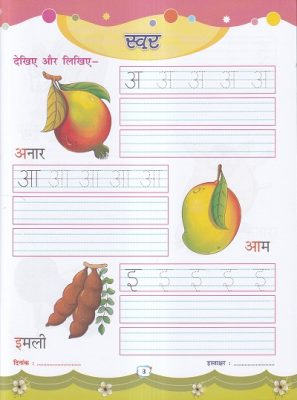 स्वर
देखिए और लिखिए–
अ अ अ अ अ
अनार
आ आ आ आ आ
आम
इ इ इ इ इ
इमली
दिनांक : 
3
हस्ताक्षर :